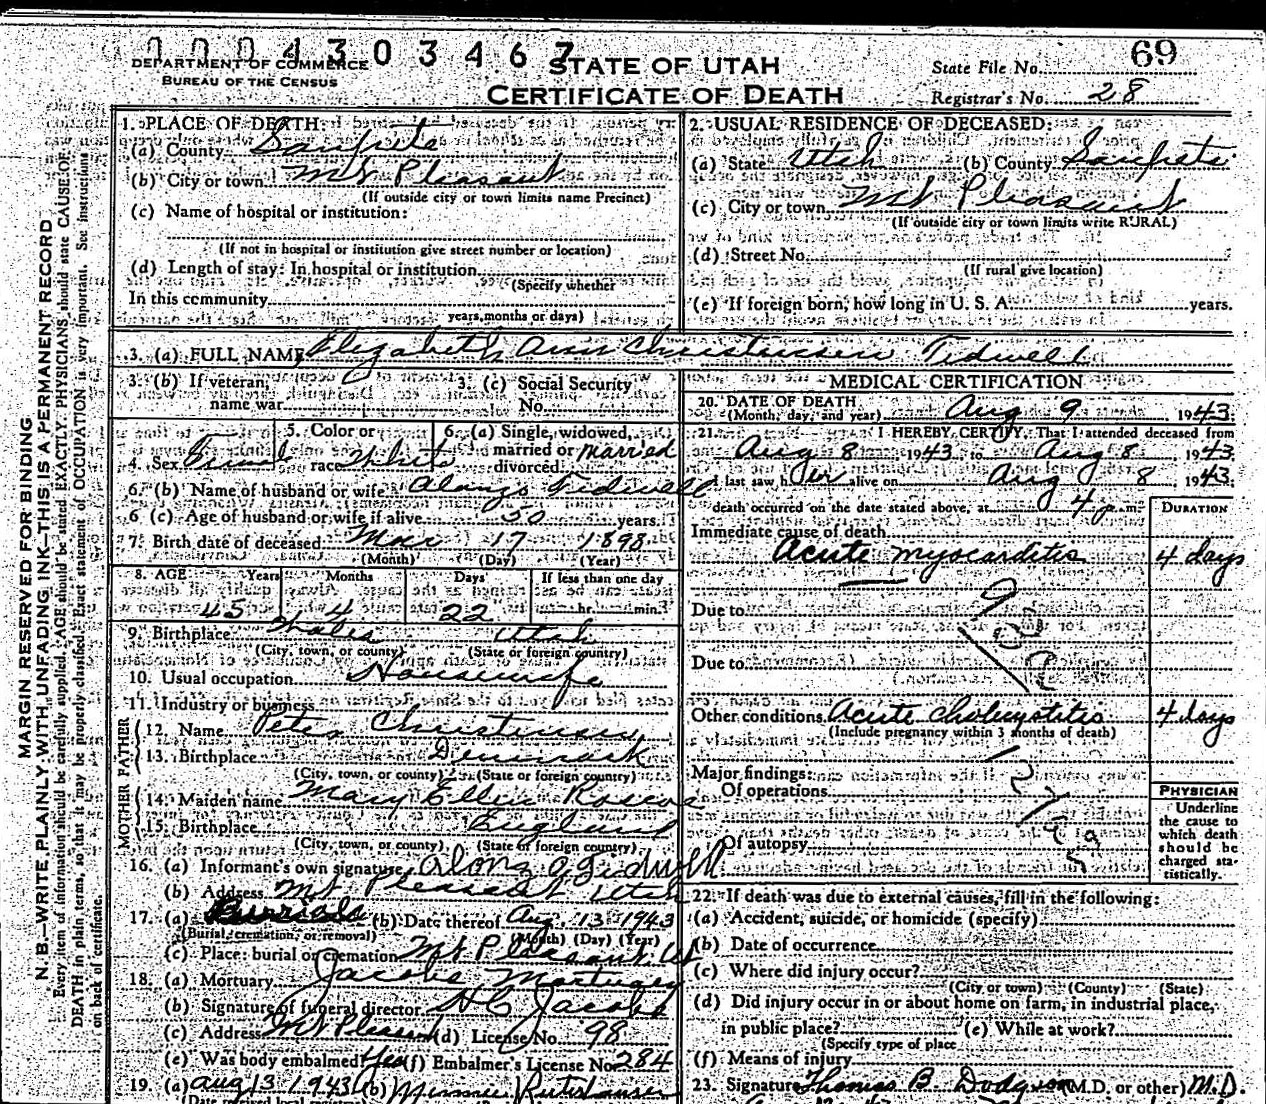 0004303467
69
DEPARTMENT OF COMMERCE
BUREAU OF THE CENSUS
STATE OF UTAH
CERTIFICATE OF DEATH
State File No.
Registrar's No. 28
1. PLACE OF DEATH:
(a) County Sanpete
(b) City or town Mt Pleasant
(If outside city or town limits name Precinct)
(c) Name of hospital or institution:
(If not in hospital or institution give street number or location)
(d) Length of stay: In hospital or institution
(Specify whether
In this community
years, months or days)
2. USUAL RESIDENCE OF DECEASED:
(a) State Utah (b) County Sanpete
(c) City or town Mt Pleasant
(If outside city or town limits write RURAL)
(d) Street No.
(If rural give location)
(e) If foreign born, how long in U. S. A. years.
3. (a) FULL NAME Elizabeth Ann Christensen Tidwell
3. (b) If veteran, name war
3. (c) Social Security No.
4. Sex Female
5. Color or race White
6. (a) Single, widowed, married or divorced married
6. (b) Name of husband or wife Alonzo Tidwell
6 (c) Age of husband or wife if alive 50 years.
7. Birth date of deceased Mar 17 1898
(Month) (Day) (Year)
8. AGE Years Months Days If less than one day
45 4 22 hr. min.
9. Birthplace Wales Utah
(City, town, or county) (State or foreign country)
10. Usual occupation Housewife
11. Industry or business
FATHER
12. Name Peter Christensen
13. Birthplace Denmark
(City, town, or county) (State or foreign country)
MOTHER
14. Maiden name Mary Ellen
15. Birthplace England
(City, town, or county) (State or foreign country)
16. (a) Informant's own signature Alonzo Tidwell
(b) Address Mt Pleasant Utah
17. (a) (b) Date thereof Aug. 13 1943
(Burial, cremation, or removal) (Month) (Day) (Year)
(c) Place: burial or cremation Mt Pleasant. Ut
18. (a) Mortuary Jacobs Mortuary
(b) Signature of funeral director H C Jacobs
(c) Address Mt Pleasant (d) License No. 98
(e) Was body embalmed? Yes (f) Embalmer's License No. 284
19. (a) Aug 13 1943 (b) Minnie
MEDICAL CERTIFICATION
20. DATE OF DEATH
(Month, day, and year) Aug 9 1943
21. I HEREBY CERTIFY, That I attended deceased from
Aug 8 1943, to Aug 8 1943,
I last saw her alive on Aug 8 1943.
death occurred on the date stated above, at 4 p.m.
DURATION
Immediate cause of death
Acute myocarditis 4 days
Due to
Due to
Other conditions Acute cholecystitis 4 days
(Include pregnancy within 3 months of death)
Major findings:
Of operations
Of autopsy
PHYSICIAN
Underline
the cause to
which death
should be
charged sta-
tistically.
22. If death was due to external causes, fill in the following:
(a) Accident, suicide, or homicide (specify)
(b) Date of occurrence
(c) Where did injury occur?
(City or town) (County) (State)
(d) Did injury occur in or about home on farm, in industrial place,
in public place? (e) While at work?
(Specify type of place
(f) Means of injury
23. Signature Thomas B. (M.D. or other) M.D.
MARGIN RESERVED FOR BINDING
N. B.—WRITE PLAINLY WITH UNFADING INK—THIS IS A PERMANENT RECORD
Every item of information should be carefully supplied. AGE should be stated EXACTLY. PHYSICIANS should state CAUSE OF
DEATH in plain terms, so that it may be properly classified. Exact statement of OCCUPATION is very important. See instructions
on back of certificate.